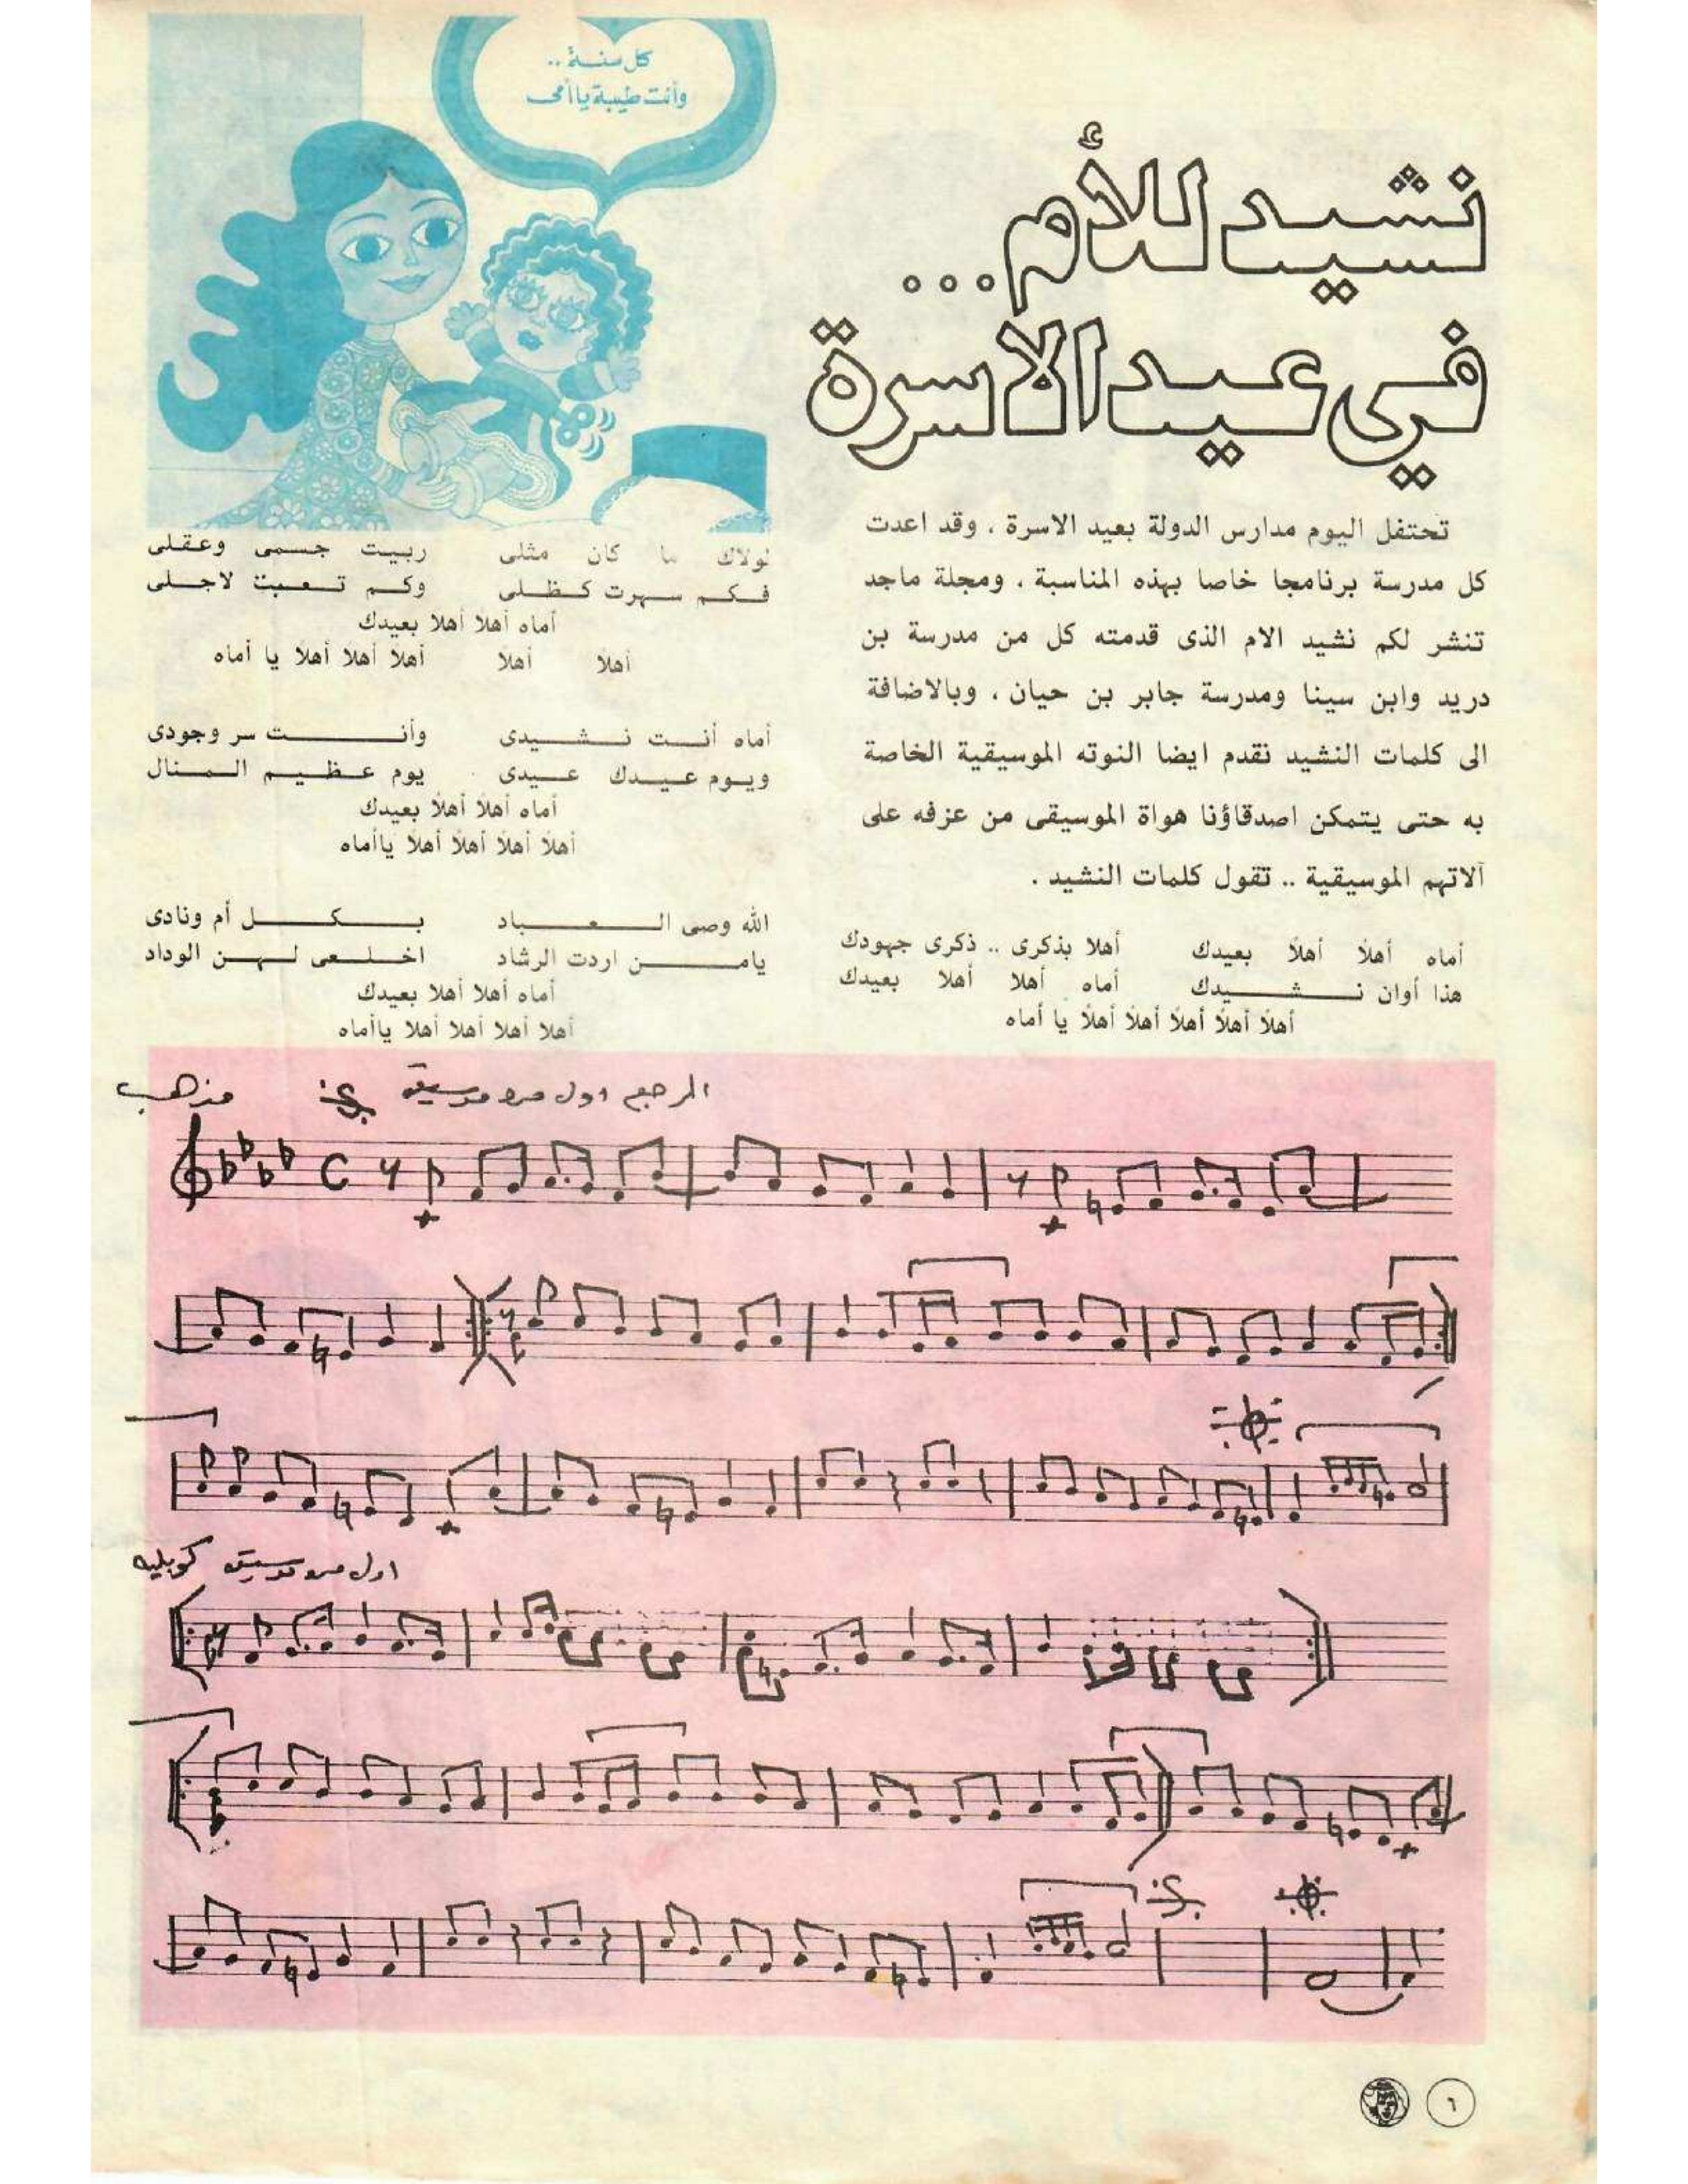 كل سنة ..
وأنت طيبة يا أمى
نشيد للأم...
في عيد الاسرة
تحتفل اليوم مدارس الدولة بعيد الاسرة . وقد اعدت
كل مدرسة برنامجا خاصا بهذه المناسبة . ومجلة ماجد
تنشر لكم نشيد الام الذى قدمته كل من مدرسة بن
دريد وابن سينا ومدرسة جابر بن حيان . وبالاضافة
الى كلمات النشيد نقدم ايضا النوته الموسيقية الخاصة
به حتى يتمكن اصدقاؤنا هواة الموسيقى من عزفه على
آلاتهم الموسيقية .. تقول كلمات النشيد .
أماه أهلا أهلا بعيدك أهلا بذكرى .. ذكرى جهودك
هذا أوان نشيدك أماه أهلا أهلا بعيدك
أهلا أهلا أهلا أهلا أهلا يا أماه
لولاك ما كان مثلى ربيت جسمى وعقلى
فكم سهرت كظلى وكم تعبت لاجلى
أماه أهلا أهلا بعيدك
أهلا أهلا أهلا أهلا أهلا يا أماه
أماه أنت نشيدى وأنت سر وجودى
ويوم عيدك عيدى يوم عظيم المنال
أماه أهلا أهلا بعيدك
أهلا أهلا أهلا أهلا ياأماه
الله وصى العباد بكل أم ونادى
يامن اردت الرشاد اخلعى لهن الوداد
أماه أهلا أهلا بعيدك
أهلا أهلا أهلا أهلا ياأماه
مذهب
المرجع اول مره موسيقى
اول مره موسيقى كوبليه
٦